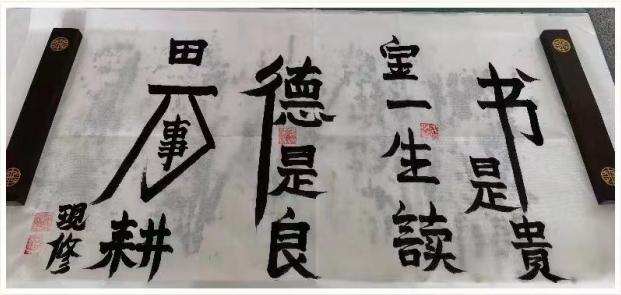 书是貴
宝一生讀
德是良
田万事耕
現修